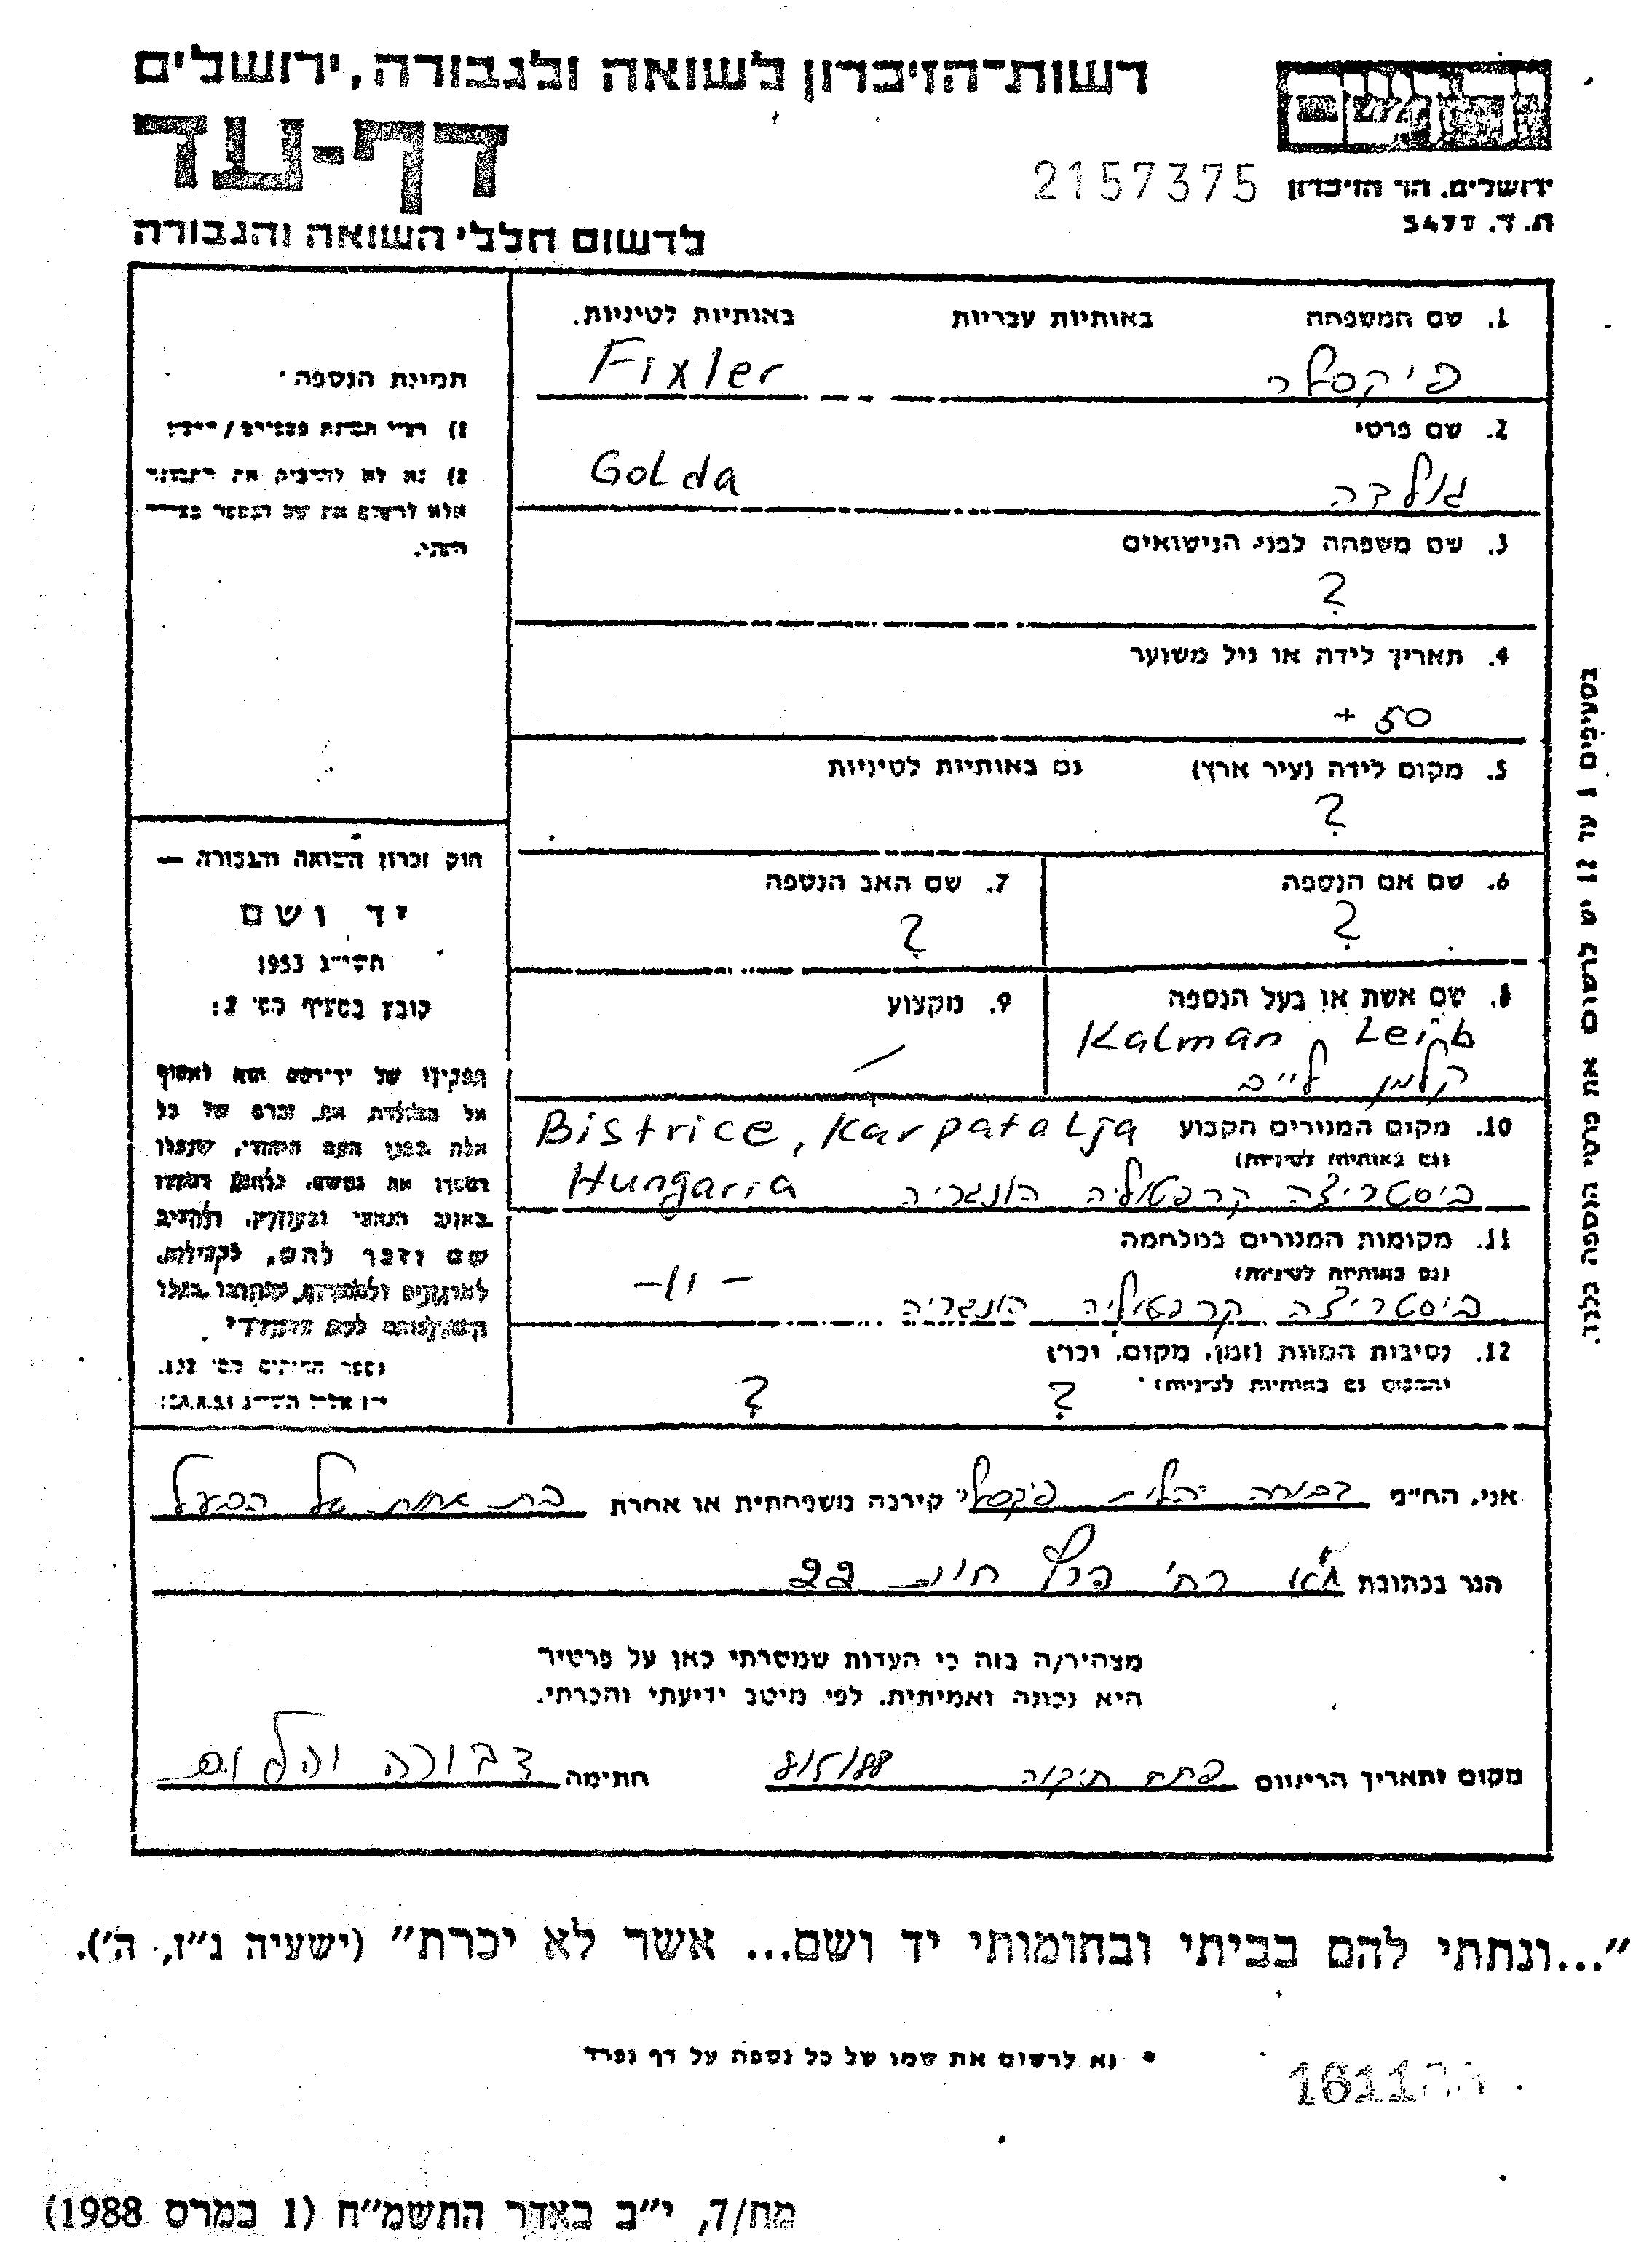 רשות-הזיכרון לשואה ולגבורה, ירושלים
דף-עד
2157375
ירושלים. הר הזיכרון
ת.ד. 3477
לרשום חללי השואה והגבורה
תמונת הנספה
1. שם המשפחה באותיות עבריות באותיות לטיניות.
פיקסלר Fixler
2. שם פרטי
גולדה Golda
3. שם משפחה לפני הנישואים
?
4. תאריך לידה או גיל משוער
50 +
5. מקום לידה (עיר ארץ) גם באותיות לטיניות
?
6. שם אם הנספה
?
7. שם האב הנספה
?
8. שם אשת או בעל הנספה
Kalman Leib
קלמן לייב
9. מקצוע
10. מקום המגורים הקבוע Bistrice, Karpatalja
(גם באותיות לטיניות) Hungaria
ביסטריצה קרפטליה הונגריה
11. מקומות המגורים במלחמה
(גם באותיות לטיניות)
ביסטריצה קרפטליה הונגריה -11-
12. נסיבות המוות (זמן, מקום, וכו')
(המקום גם באותיות לטיניות)
? ?
חוק זכרון השואה והגבורה —
יד ושם
תשי״ג 1953
קובע בסעיף מס׳ 2:
תפקידו של יד-ושם הוא לאסוף
אל המולדת את זכרם של כל
אלה מבני העם היהודי, שנפלו
ומסרו את נפשם, נלחמו ומרדו
באויב הנאצי ובעוזריו, ולהציב
שם וזכר להם, לקהילות,
לארגונים ולמוסדות שנחרבו בגלל
השתייכותם לעם היהודי
אני, הח״מ דבורה קירבה משפחתית או אחרת בת אחות של הבעל
הגר בכתובת ת״א רח׳ 22
מצהיר/ה בזה כי העדות שמסרתי כאן על פרטיה
היא נכונה ואמיתית, לפי מיטב ידיעתי והכרתי.
מקום ותאריך הרישום פתח תיקוה 8/5/88 חתימה דבורה
"...ונתתי להם בביתי ובחומותי יד ושם... אשר לא יכרת" (ישעיה נ״ו, ה׳).
* נא לרשום את שמו של כל נספה על דף נפרד
מח/ד, י״ב באדר התשמ״ח (1 במרס 1988)